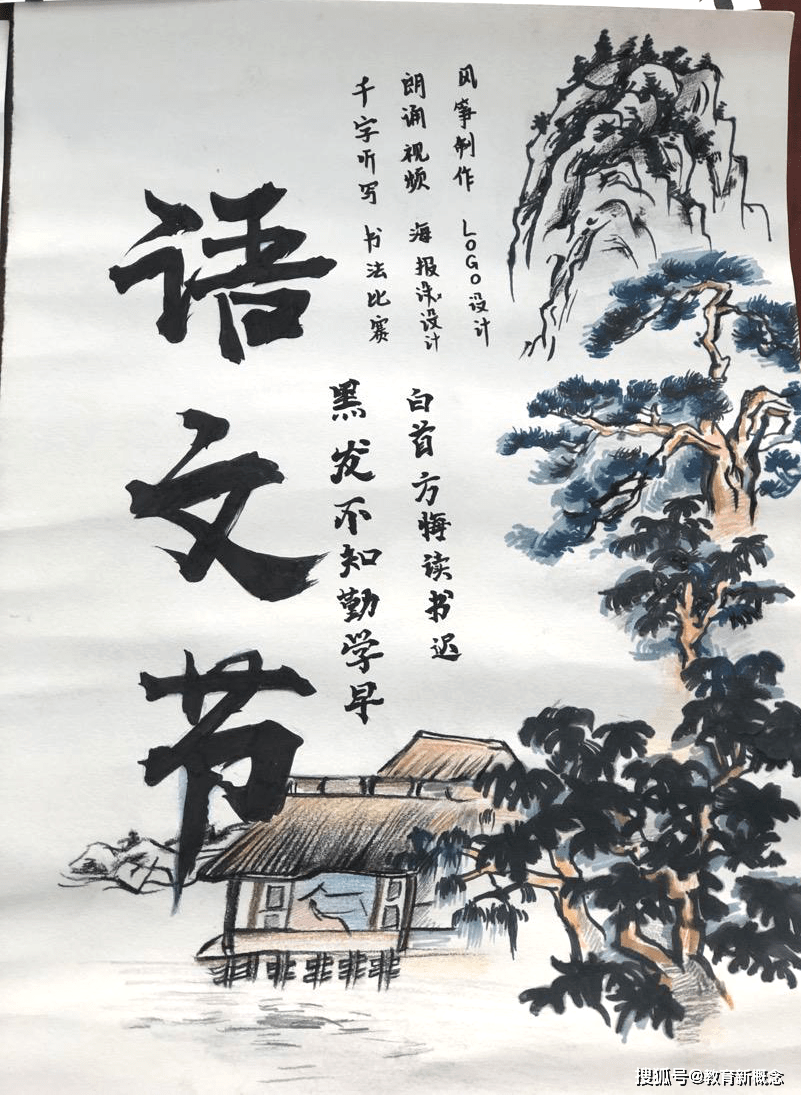 语文节
千字听写 书法比赛
朗诵视频 海报设计
风筝制作 LOGO设计
黑发不知勤学早
白首方悔读书迟
搜狐号@教育新概念